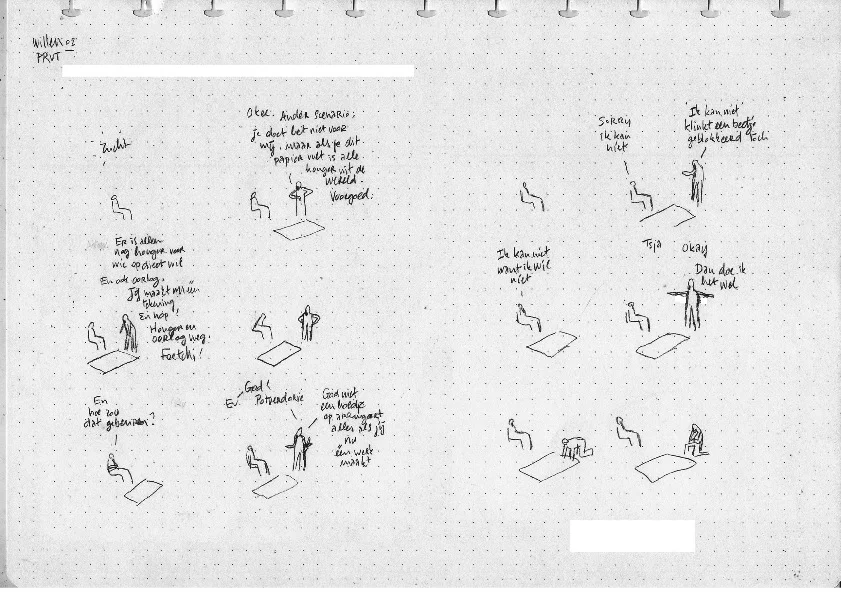 Willem 03
PRVT
Zucht
Okee. Ander scenario:
je doet het niet voor
mij, maar als je dit
papier vult is alle
honger uit de
wereld.
Voorgoed.
Er is alleen
nog honger voor
wie op dieet wil
En ook oorlog.
Jij maakt één
tekening
En hop!
Honger en
oorlog weg.
Foetchi!
En
hoe zou
dat gebeuren?
God!
Potverdorie
God niet
een hoedje
op
alles als jij
nu
één werk
maakt
Sorry
ik kan
niet
Ik kan niet
klinkt een beetje
geblokkeerd Toch
Ik kan niet
want ik wil
niet
Tsja
Okay
Dan doe ik
het wel